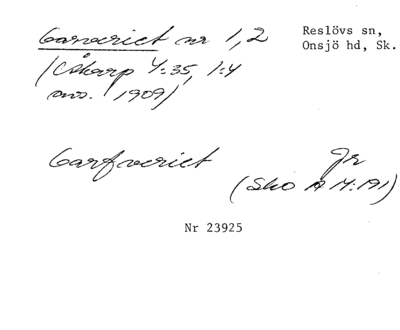 Garveriet nr 1,2
Reslövs sn,
Onsjö hd, Sk.
(Åkarp 4:35, 1:4
avs. 1909)
Garfveriet Jr
(Sko A M:191)
Nr 23925